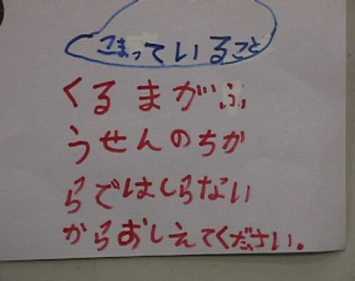 こまっていること
くるまがふ
うせんのちか
らではしらない
からおしえてください。